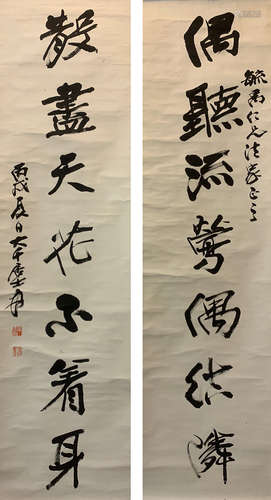 毓仁兄法家正之
偶聽流鶯偶結隣
散盡天花不着身
丙戌夏日大千居士爰